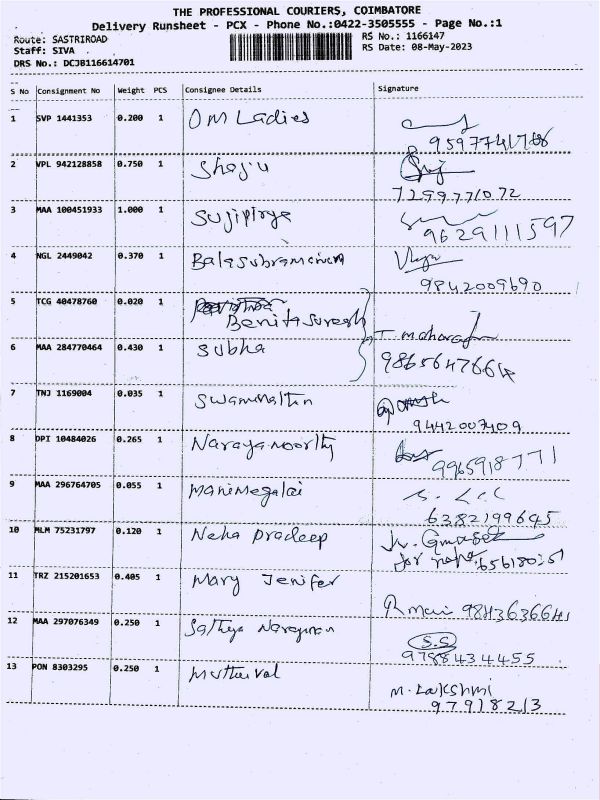 THE PROFESSIONAL COURIERS, COIMBATORE
Delivery Runsheet - PCX - Phone No.:0422-3505555 - Page No.:1
Route: SASTRIROAD
RS No.: 1166147
Staff: SIVA
RS Date: 08-May-2023
DRS No.: DCJB116614701
S No Consignment No Weight PCS Consignee Details Signature
1 SVP 1441353 0.200 1 OM Ladies
2 VPL 942128858 0.750 1 Shaju
7299771072
3 MAA 100451933 1.000 1 Sujipriya
9629111597
4 NGL 2449042 0.370 1 Balasubramaniam
9842009690
5 TCG 40478760 0.020 1
Benita Suresh
6 MAA 284770464 0.430 1 Subha
7 TNJ 1169004 0.035 1
9442007409
8 DPI 10484026 0.265 1 Narayamoorthy
9965918771
9 MAA 296764705 0.055 1 Manimegalai
6382199645
10 MLM 75231797 0.120 1 Neha Pradeep
11 TRZ 215201653 0.405 1 Mary Jenifer
12 MAA 297076349 0.250 1 Sathya Narayanan
S.S
9788434455
13 PON 8303295 0.250 1
M. Lakshmi